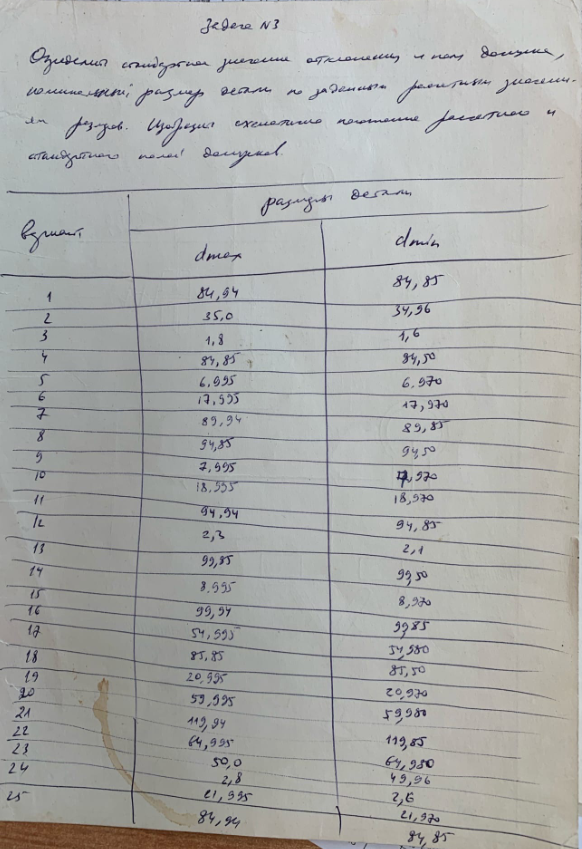 Задача №3
Определить стандартное значение отклонения и поля допусков,
номинальный размер детали по заданным расчетным значени-
ям разм-ров. Изобразить схематично положение расчетного и
стандартного полей допусков.
вариант размеры детали
dmax dmin
1 84,94 84,85
2 35,0 34,96
3 1,8 1,6
4 84,85 84,50
5 6,995 6,970
6 17,995 17,970
7 89,94 89,85
8 94,85 94,50
9 7,995 7,970
10 18,995 18,970
11 94,94 94,85
12 2,3 2,1
13 99,85 99,50
14 8,995 8,970
15 99,94 99,85
16 54,995 54,980
17 85,85 85,50
18 20,995 20,970
19 59,995 59,980
20 119,94 119,85
21 64,995 64,980
22 50,0 49,96
23 2,8 2,6
24 21,995 21,970
25 84,94 84,85